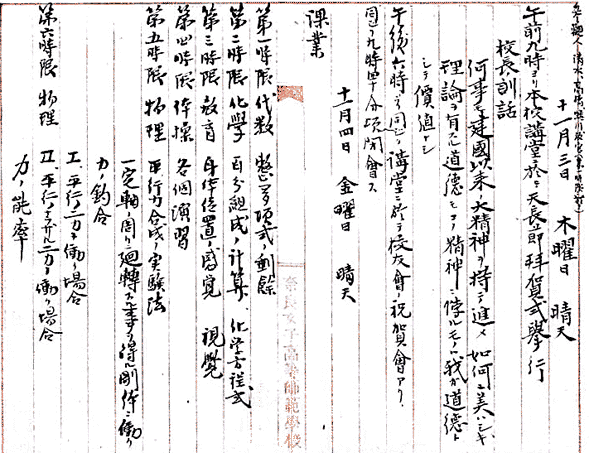 十一月三日　木曜日　晴天
午前九時ヨリ本校講堂ニ於テ天長節拝賀式挙行
校長訓話
何事モ建國以来ノ大精神ヲ持シテ進メ如何ニ美ハシキ
理論ヲ有スル道徳モコノ精神ニ悖ルモノハ我ガ道徳ト
シテ價値ナシ
午後六時ヨリ同ジク講堂ニ於テ校友會ノ祝賀會アリ
同ジク九時四十分頃閉會ス
十一月四日　金曜日　晴天
課業
第一時限　代数　整多項式ノ剰餘
第二時限　化學　百分組成ノ計算　化学方程式
第三時限　教育　身体位置ノ感覚　視覺
第四時限　体操　各個演習
第五時限　物理　平行力合成ノ実験法
一定軸ノ周リニ廻轉スル事ヲ得ル剛体ニ働ク
力ノ釣合
I. 平行ノ二力ノ働ク場合
II. 平行ナラザル二力ノ働ク場合
第六時限　物理　力ノ能率
奈良女子高等師範學校